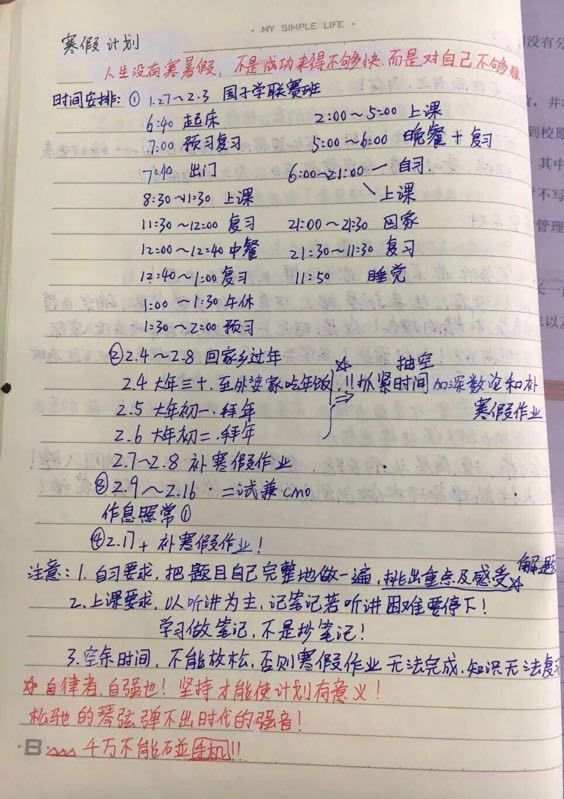 MY SIMPLE LIFE
寒假计划
人生没有寒暑假,不是成功来得不够快,而是对自己不够狠
时间安排:① 1.27~2.3 国子学联赛班
6:40 起床 2:00~5:00 上课
7:00 预习复习 5:00~6:00 晚餐+复习
7:40 出门 6:00~21:00 自习.
8:30~11:30 上课 上课
11:30~12:00 复习 21:00~21:30 回家
12:00~12:40 中餐 21:30~11:30 复习
12:40~1:00 复习 11:50 睡觉
1:00~1:30 午休
1:30~2:00 预习
② 2.4~2.8 回家乡过年 抽空
2.4 大年三十.至外婆家吃年饭.!!抓紧时间 加深数论和补
2.5 大年初一.拜年 寒假作业
2.6 大年初二.拜年
2.7~2.8 补寒假作业
③ 2.9~2.16 二试兼CMO
作息照常①
④ 2.17+ 补寒假作业!
注意:1.自习要求,把题目自己完整地做一遍,挑出重点及感受 解题
2.上课要求,以听讲为主,记笔记若听讲困难要停下!
学习做笔记,不是抄笔记!
3.空余时间,不能放松,否则寒假作业无法完成,知识无法复
☆自律者,自强也!坚持才能使计划有意义!
松弛的琴弦弹不出时代的强音!
千万不能碰手机!!
没有分